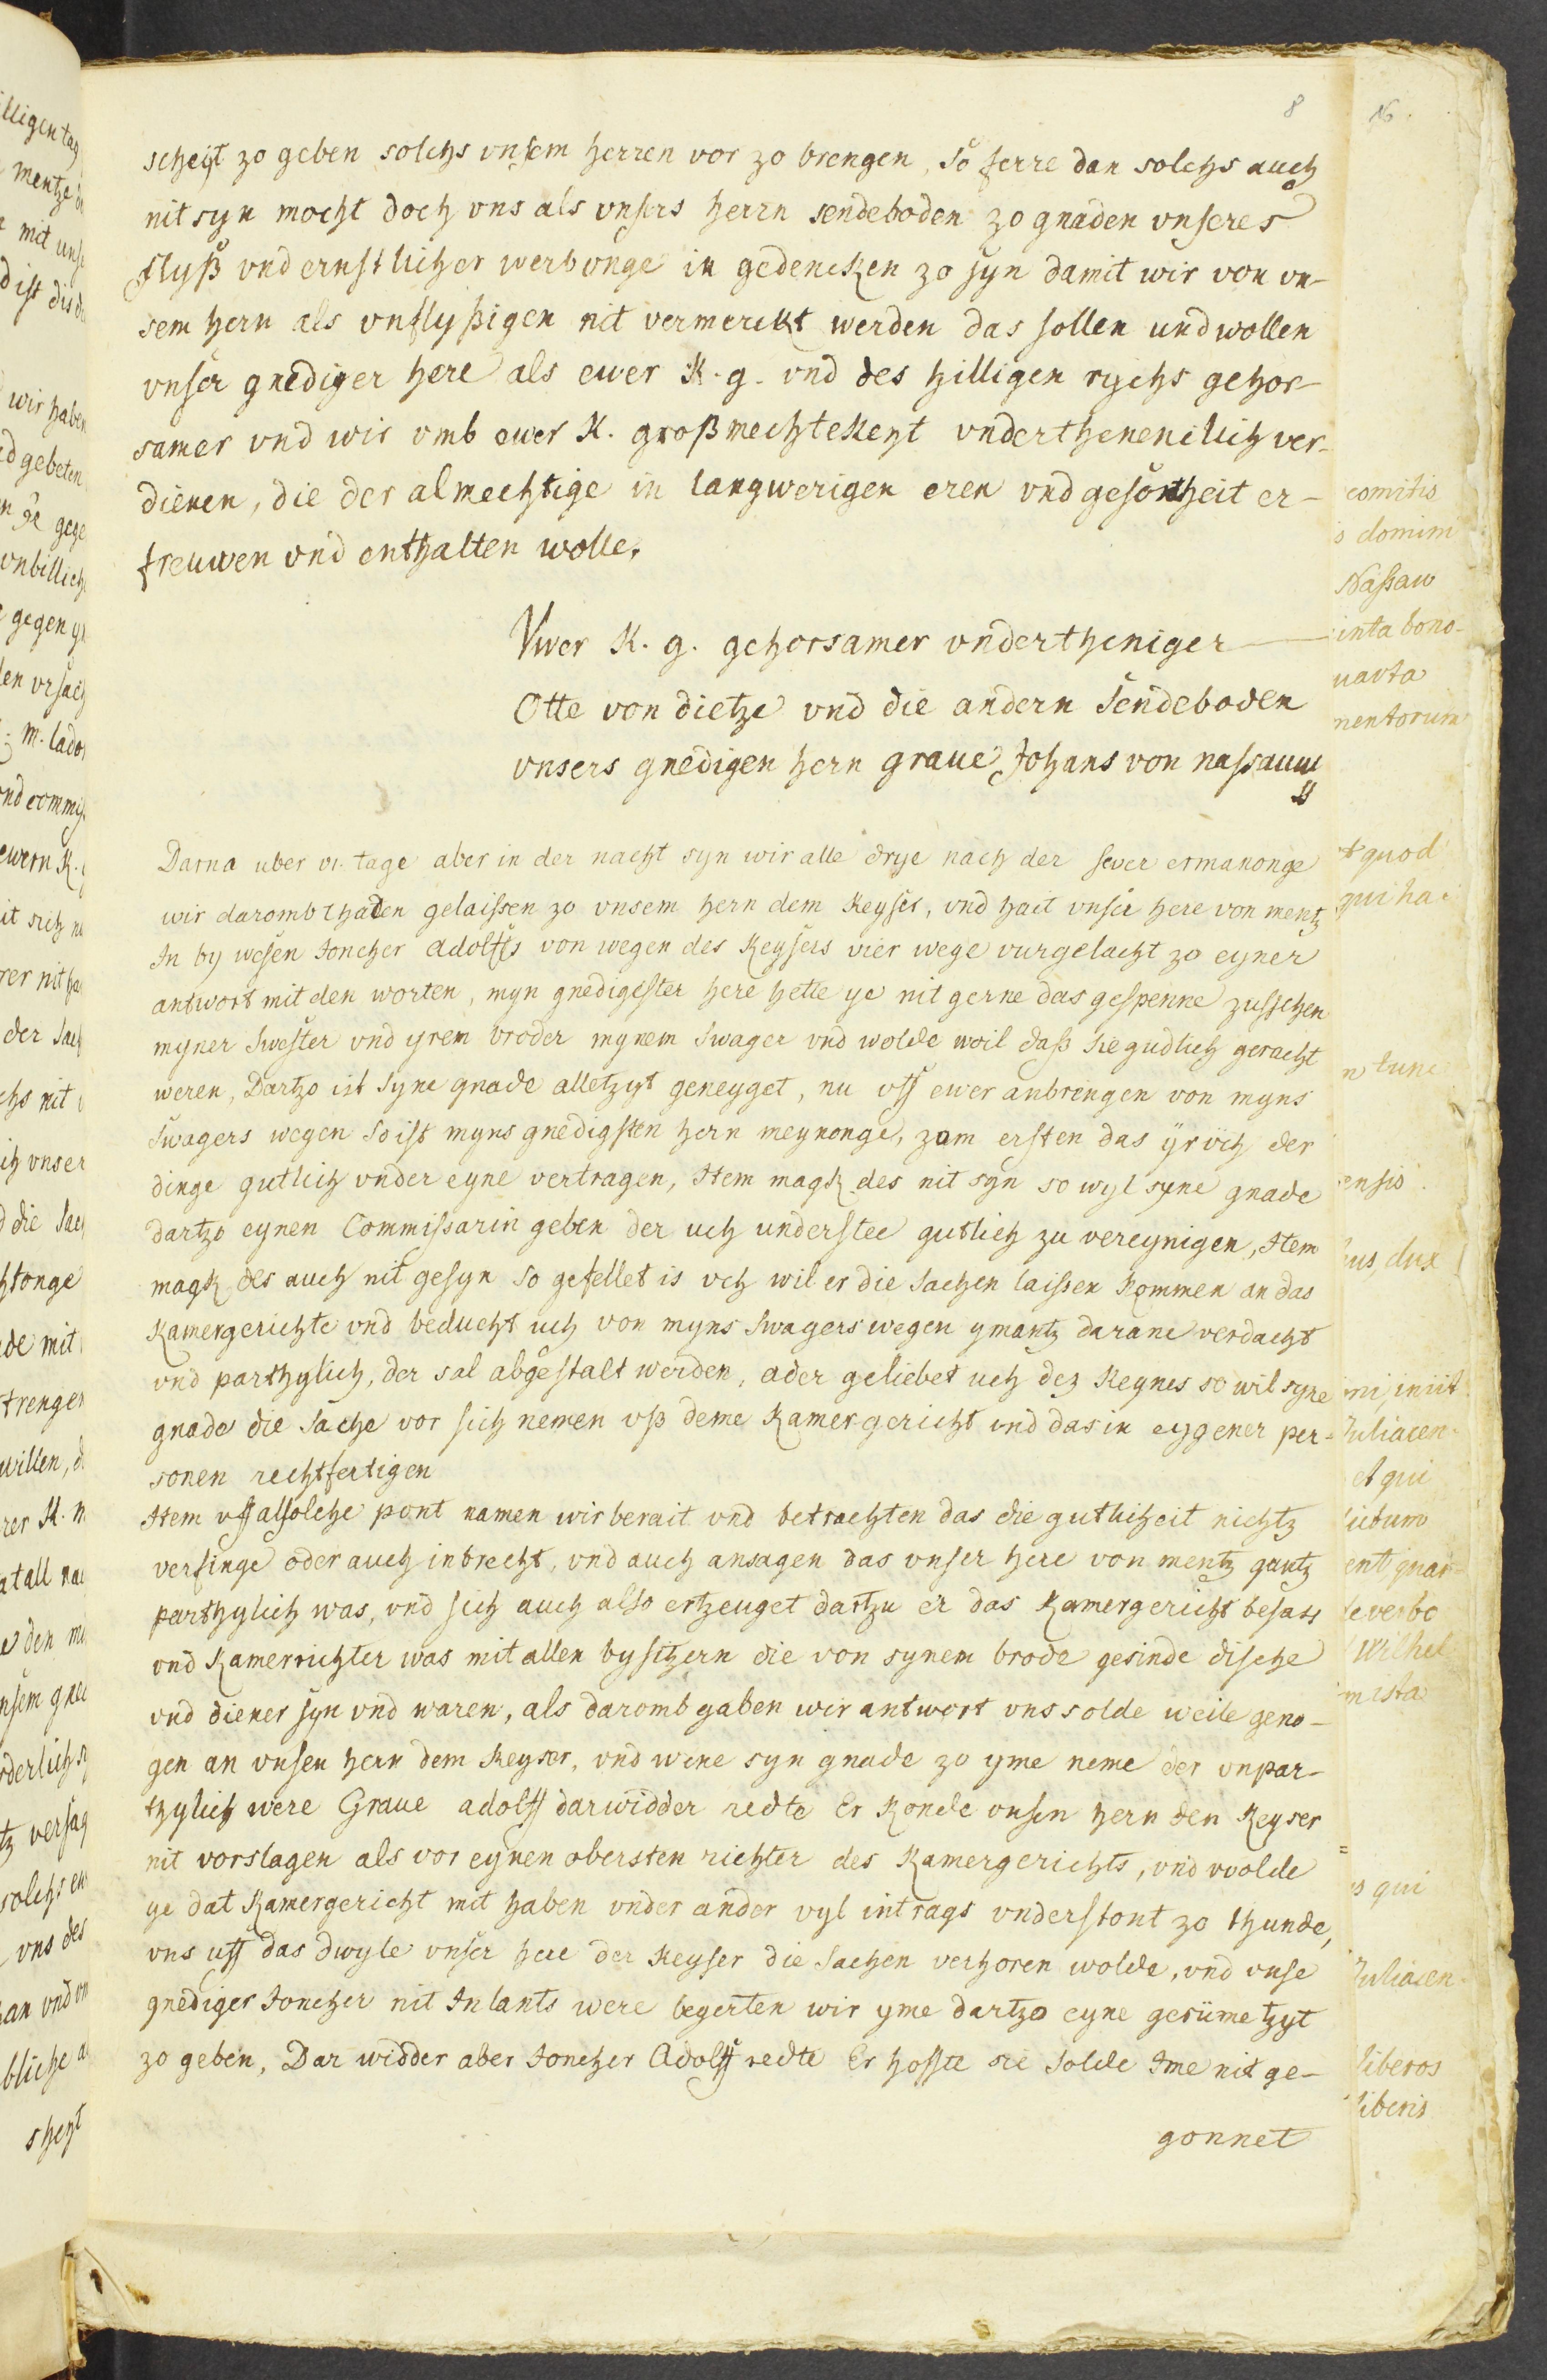 8
16.
scheyt zo geben solchs vnsem herren vor zo brengen, so ferre dan solchs auch
nit syn mocht doch vns als vnsers herrn sendeboden zo gnaden vnseres
flyß vnd ernstlicher werbonge in gedencken zo syn damit wir von vn-
sem hern als vnflyßigen nit vermerckt werden das sollen und wollen
vnser gnediger here als ewer K. g. vnd des hilligen rychs gehor-
samer vnd wir vmb ewer K. großmechtekeyt vnderthenenclich ver-
dienen, die der almechtige in langwerigen eren vnd gesontheit er-
freuwen vnd enthalten wolle.
Vwer K. g. gehorsamer vndertheniger
Otte von dietze vnd die andern sendeboden
vnsers gnedigen hern graue Johans von nassauw
Darna uber vi. tage aber in der nacht syn wir alle drye nach der sever ermanonge
wir daromb thaden gelaissen zo vnsem hern dem Keyser, vnd hait vnser here von mentz
In by wesen Joncher adolffs von wegen des Keysers vier wege vurgelacht zo eyner
antwort mit den worten, myn gnedigester here hette ye nit gerne das gespenne zusschen
myner swester vnd yrem broder mynem swager vnd wolde woil daß sie gudlich geracht
weren, Dartzo ist syne gnade alletzyt geneyget, nu vff ewer anbrengen von myns
swagers wegen so ist myns gnedigsten hern meynonge, zom ersten das yr vch der
dinge gutlich vnder eyne vertragen, Item magk des nit syn so wyl syne gnade
dartzo eynen Commissarin geben der uch understee gutlich zu vereynigen, Item
magk des auch nit gesyn so gefellet is vch wil er die sachen laissen kommen an das
Kamergerichte vnd beducht uch von myns swagers wegen ymantz darane verdacht
vnd parthylich, der sal abgestalt werden, ader geliebet uch dez Keynes so wil syne
gnade die sache vor sich nemen vß deme Kamergericht vnd das in eygener per-
sonen rechtfertigen
Item vff alsolche pont namen wir berait vnd betrachten das die gutlicheit nichtz
verfinge oder auch inbrecht, vnd auch ansagen das vnser here von mentz gantz
parthylich was, vnd sich auch also ertzeuget dartzu er das Kamergericht besass
vnd Kamerrichter was mit allen bysitzern die von synem brode gesinde dische
vnd diener syn vnd waren, als daromb gaben wir antwort vns solde weile geno-
gen an vnsen hern dem Keyser, vnd wene syn gnade zo yme neme der vnpar-
thylich were Graue adolff darwidder redte Er Konde vnsen hern den Keyser
nit vorslagen als vor eynen obersten richter des Kamergerichts, vnd wolde
ye dat Kamergericht mit haben vnder ander vyl intrags vnderstont zo thunde,
vns uff das dwyle vnser here der Keyser die sachen verhoren wolde, vnd vnse
gnediger Joncher nit Inlants were begerten wir yme dartzo eyne gerüme tzyt
zo geben, Dar widder aber Joncher Adolff redte Er hoffte sie solde Ime nit ge-
gonnet